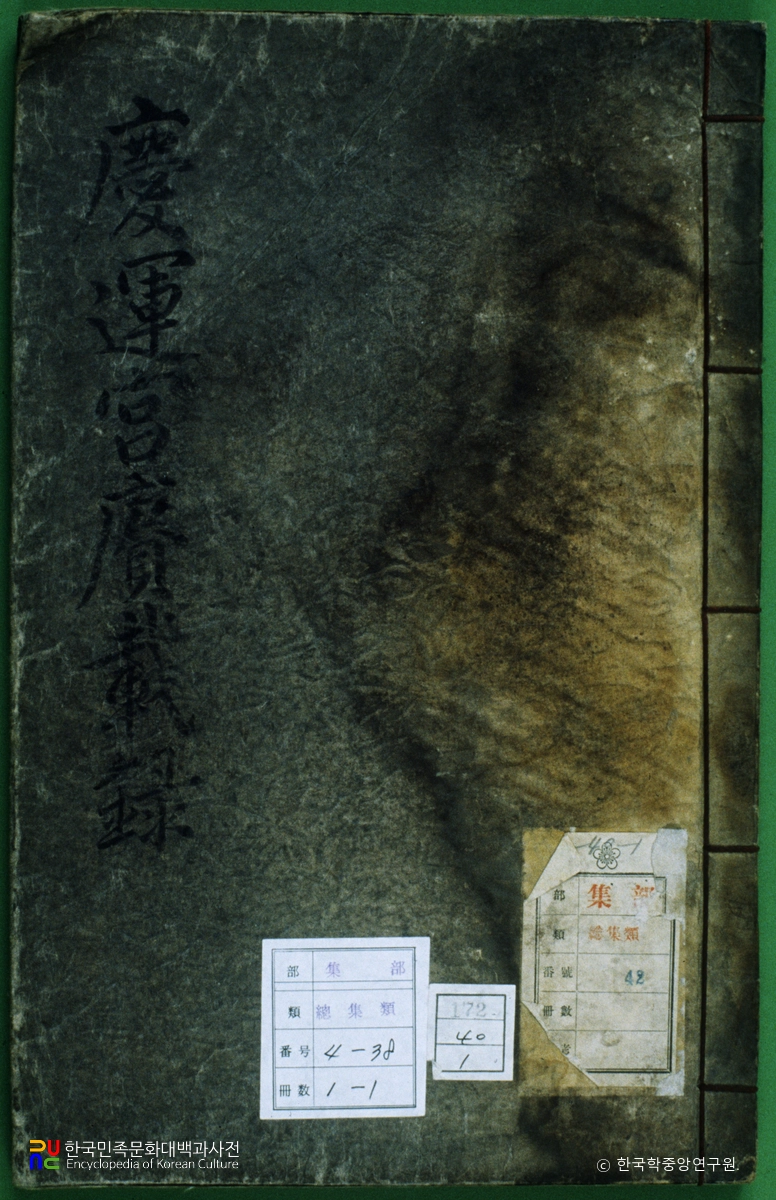 慶運宮賡載錄
部 集 部
類 總集類
番号 4-38
冊數 1-1
172
40
1
部 集 部
類 總集類
番號 42
冊數
한국민족문화대백과사전
Encyclopedia of Korean Culture
ⓒ 한국학중앙연구원